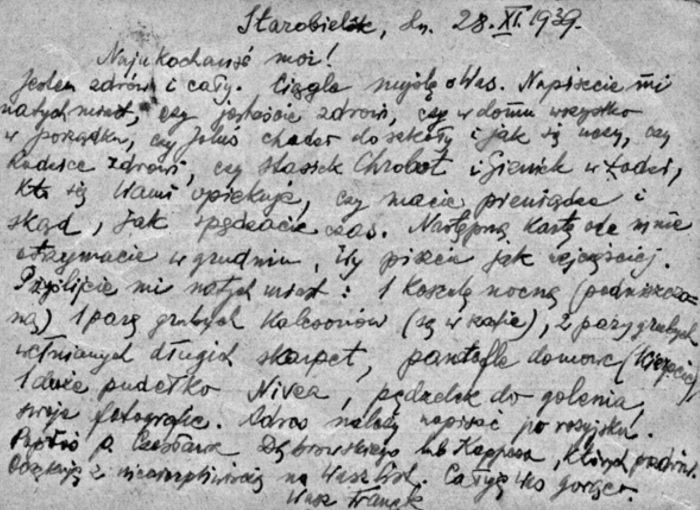 Starobielsk, dn. 28. XI. 1939.
Najukochańsi moi!
Jestem zdrów i cały. Ciągle myślę o Was. Napiszcie mi
natychmiast, czy jesteście zdrowi, czy w domu wszystko
w porządku, czy Juluś chodzi do szkoły i jak się uczy, czy
Rodzice zdrowi, czy Stasiek Chrobot i Gieniek w Łodzi,
kto się Wami opiekuje, czy macie pieniądze i
skąd, jak spędzacie czas. Następną kartę ode mnie
otrzymacie w grudniu, Wy piszcie jak najczęściej.
Przyślijcie mi natychmiast: 1 koszulę nocną (podniszczo-
ną) 1 parę grubych kalesonów (są w szafie), 2 pary grubych
wełnianych długich skarpet, pantofle domowe (kierpce),
1 duże pudełko Nivea, pędzelek do golenia,
swoje fotografie. Adres należy napisać po rosyjsku.
p. Czesława Dąbrowskiego lub Kappesa, których
Oczekuję z niecierpliwością na Wasz list. Całuję Was gorąco.
Wasz Franek